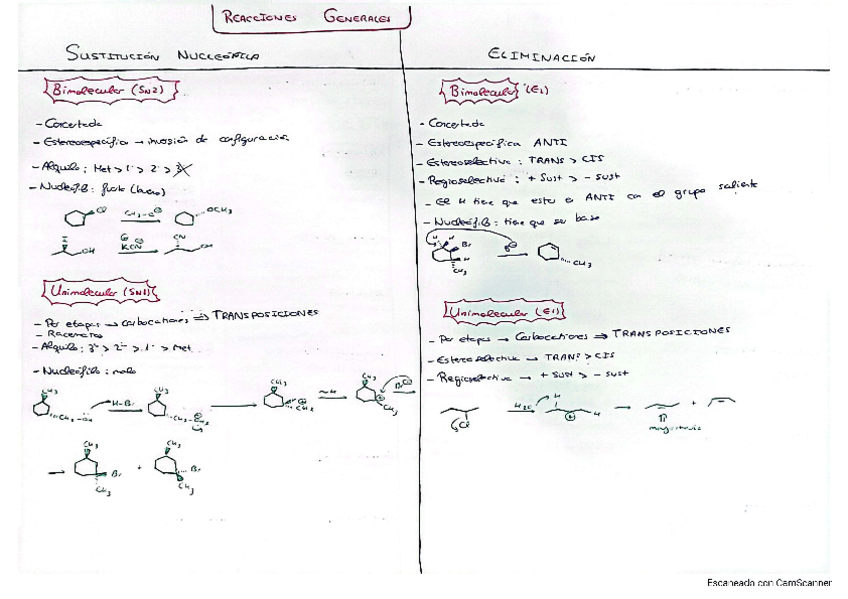 REACCIONES GENERALES
SUSTITUCIÓN NUCLEÓFILA
Bimolecular (SN2)
- Concertada
- Estereoespecífica → inversión de configuración
- Alquilo: Met > 1º > 2º > 3º
- Nucleófilo: fuerte (base)
Cl
CH3-O⊖
OCH3
OH
KCN
CN
OH
Unimolecular (SN1)
- Por etapas → carbocationes ⇒ TRANSPOSICIONES
- Racémico
- Alquilo: 3º > 2º > 1º > Met
- Nucleófilo: malo
CH3
CH2-OH
H-Br
CH3
CH3
CH2
CH3
CH3
Br⊖
CH3
Br
CH3
+
CH3
Br
CH3
ELIMINACIÓN
Bimolecular (E1)
- Concertada
- Estereoespecífica ANTI
- Estereoselectiva: TRANS > CIS
- Regioselectiva: + sust > - sust
- El H tiene que estar en ANTI con el grupo saliente
- Nucleófilo: tiene que ser base
H
Br
H
CH3
B⊖
CH3
Unimolecular (E1)
- Por etapas → Carbocationes ⇒ TRANSPOSICIONES
- Estereoselectiva → TRANS > CIS
- Regioselectiva → + sust > - sust
Cl
H2O
H
⊕
H
+
mayoritario
Escaneado con CamScanner